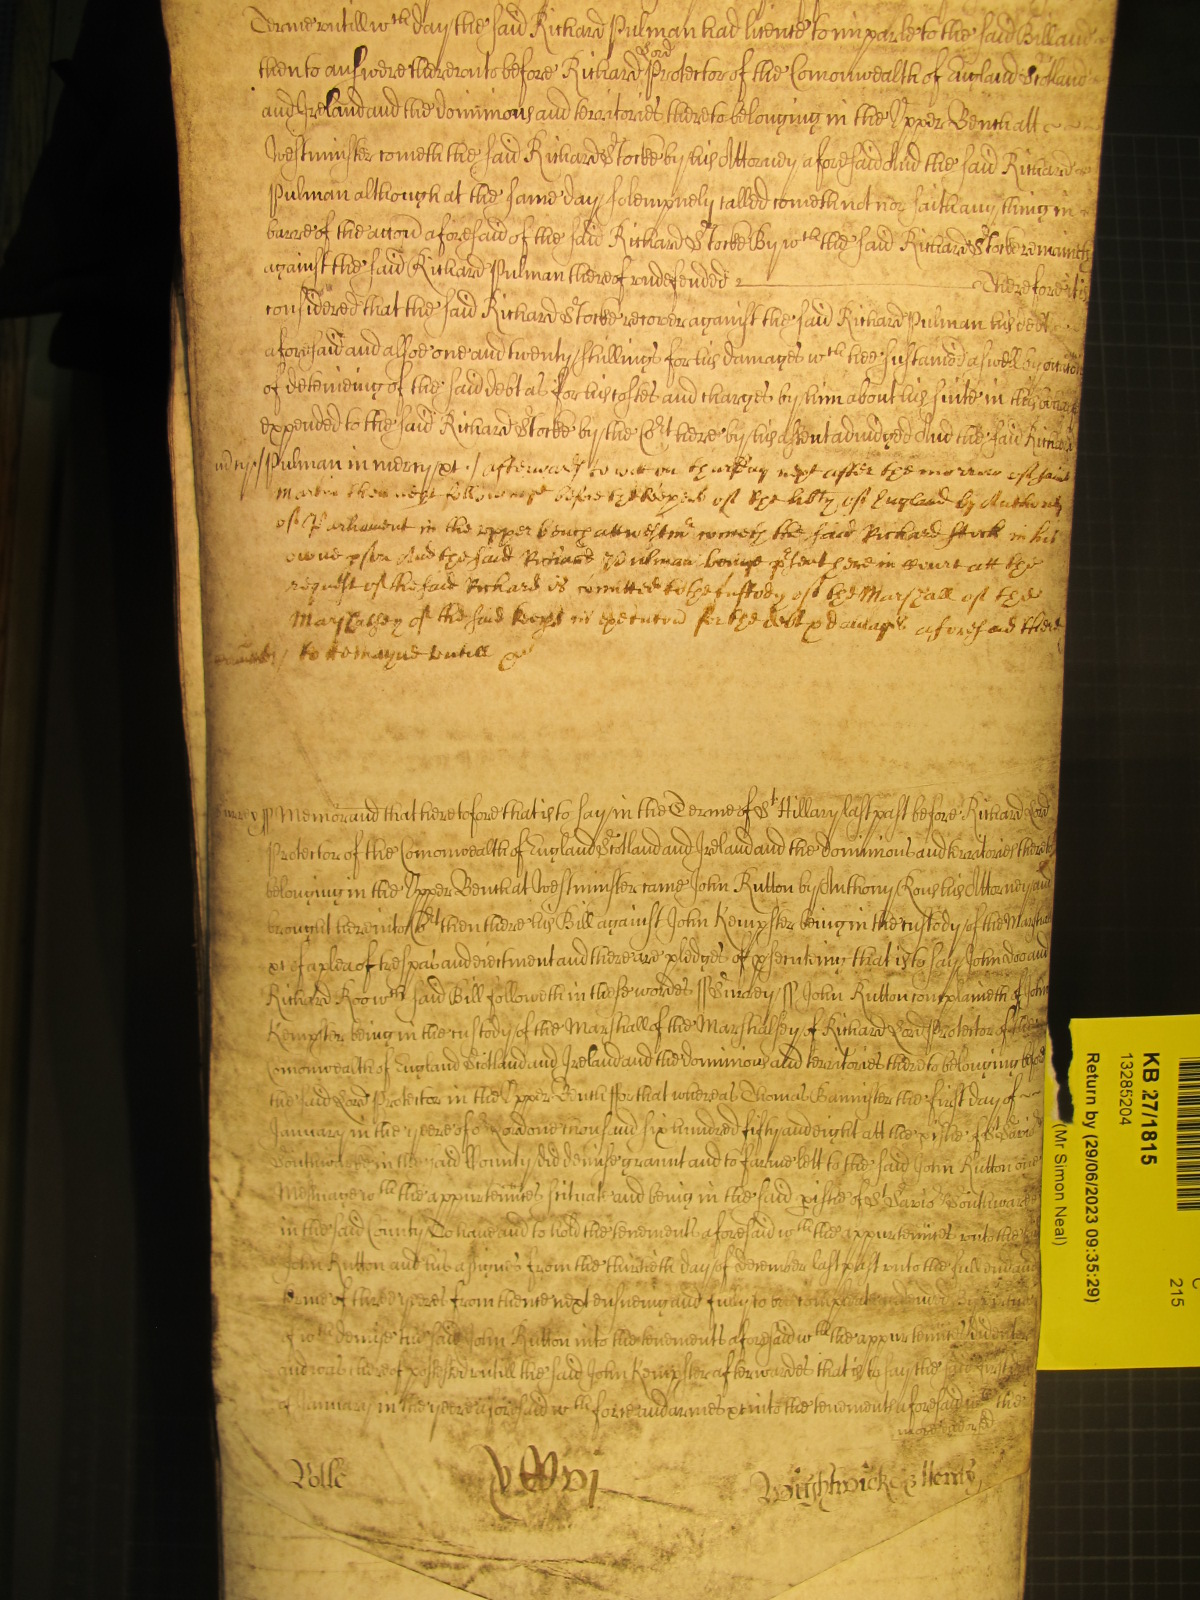 Terme untill wch day the said Richard Pulman had licence to imparle to the said Bill and
then to answere thereunto before Richard Lord Protector of the Comonwealth of England Scotland
and Ireland and the dominions and territories thereto belonging in the Upper Bench att
Westminster cometh the said Richard Stocke by his Attorney aforesaid And the said Richard
Pulman although at the same day solempnely called cometh not nor saith any thing in
barre of the accon aforesaid of the said Richard Stocke By wch the said Richard Stocke remaineth
against the said Richard Pulman thereof undefended Therefore it is
considered that the said Richard Stocke recover against the said Richard Pulman his debt
aforesaid and alsoe one and twenty shillings for his damages wch hee sustained aswell by occasion
of deteineing of the said debt as for his costes and charges by him about his suite in this behalfe
expended to the said Richard Stocke by the Cort here by his assent adiudged And the said Richard
Pulman in mercy &c / afterwards to wit on thursday next after the morrow of saint
Martin then next following before the keepers of the libty of England by Authority
of Parliament in the upper bench att westmr cometh the said Richard Stock in his
owne pson And the said Richard Pulman being psent here in Court att the
request of the said Richard is comitted to the custody of the Marshall of the
Marshalsey of the said keeps in execucon for the debt & damages aforesaid there
to remayne untill &c
Surrey ss Memorand that heretofore that is to say in the Terme of St Hillary last past before Richard Lord
Protector of the Comonwealth of England Scotland and Ireland and the dominions and territories thereto
belonging in the Upper Bench at Westminster came John Rutton by Anthony Rous his Attorney and
brought here into Cort then there his Bill against John Kempster being in the custody of the Marshall
&c of a plea of trespas and eiectment and there are pledges of psecuting that is to say John Doo and
Richard Roo wch said Bill followeth in these wordes ss Surrey ss John Rutton complaineth of John
Kempster being in the custody of the Marshall of the Marshalsey of Richard Lord Protector of the
Comonwealth of England Scotland and Ireland and the dominions and territories thereto belonging before
the said Lord Protector in the Upper Bench For that whereas Thomas Bannister the first day of
January in the yeere of or Lord one thousand six hundred fifty and eight att the pishe of St Savior
Southwarke in the said County did demise graunt and to farme lett to the said John Rutton one
Messuage wth the appurtennces scituate and being in the said pishe of St Savior Southwarke
in the said County To have and to hold the tenements aforesaid wth the appurtennces unto the said
John Rutton and his assignes from the thirtieth day of December last past unto the full end and
terme of three yeeres from thence next ensueing and fully to be compleat and ended By vertue
of wch demise the said John Rutton into the tenements aforesaid wth the appurtennces did enter
and was thereof possessed untill the said John Kempster afterwardes that is to say the said first day
of January in the yeere aforesaid wth force and armes &c into the tenements aforesaid wth the
more endorsed
Rolle
Wightwick
KB 27/1815
13285204
Return by (29/06/2023 09:35:29)
(Mr Simon Neal)
C
215